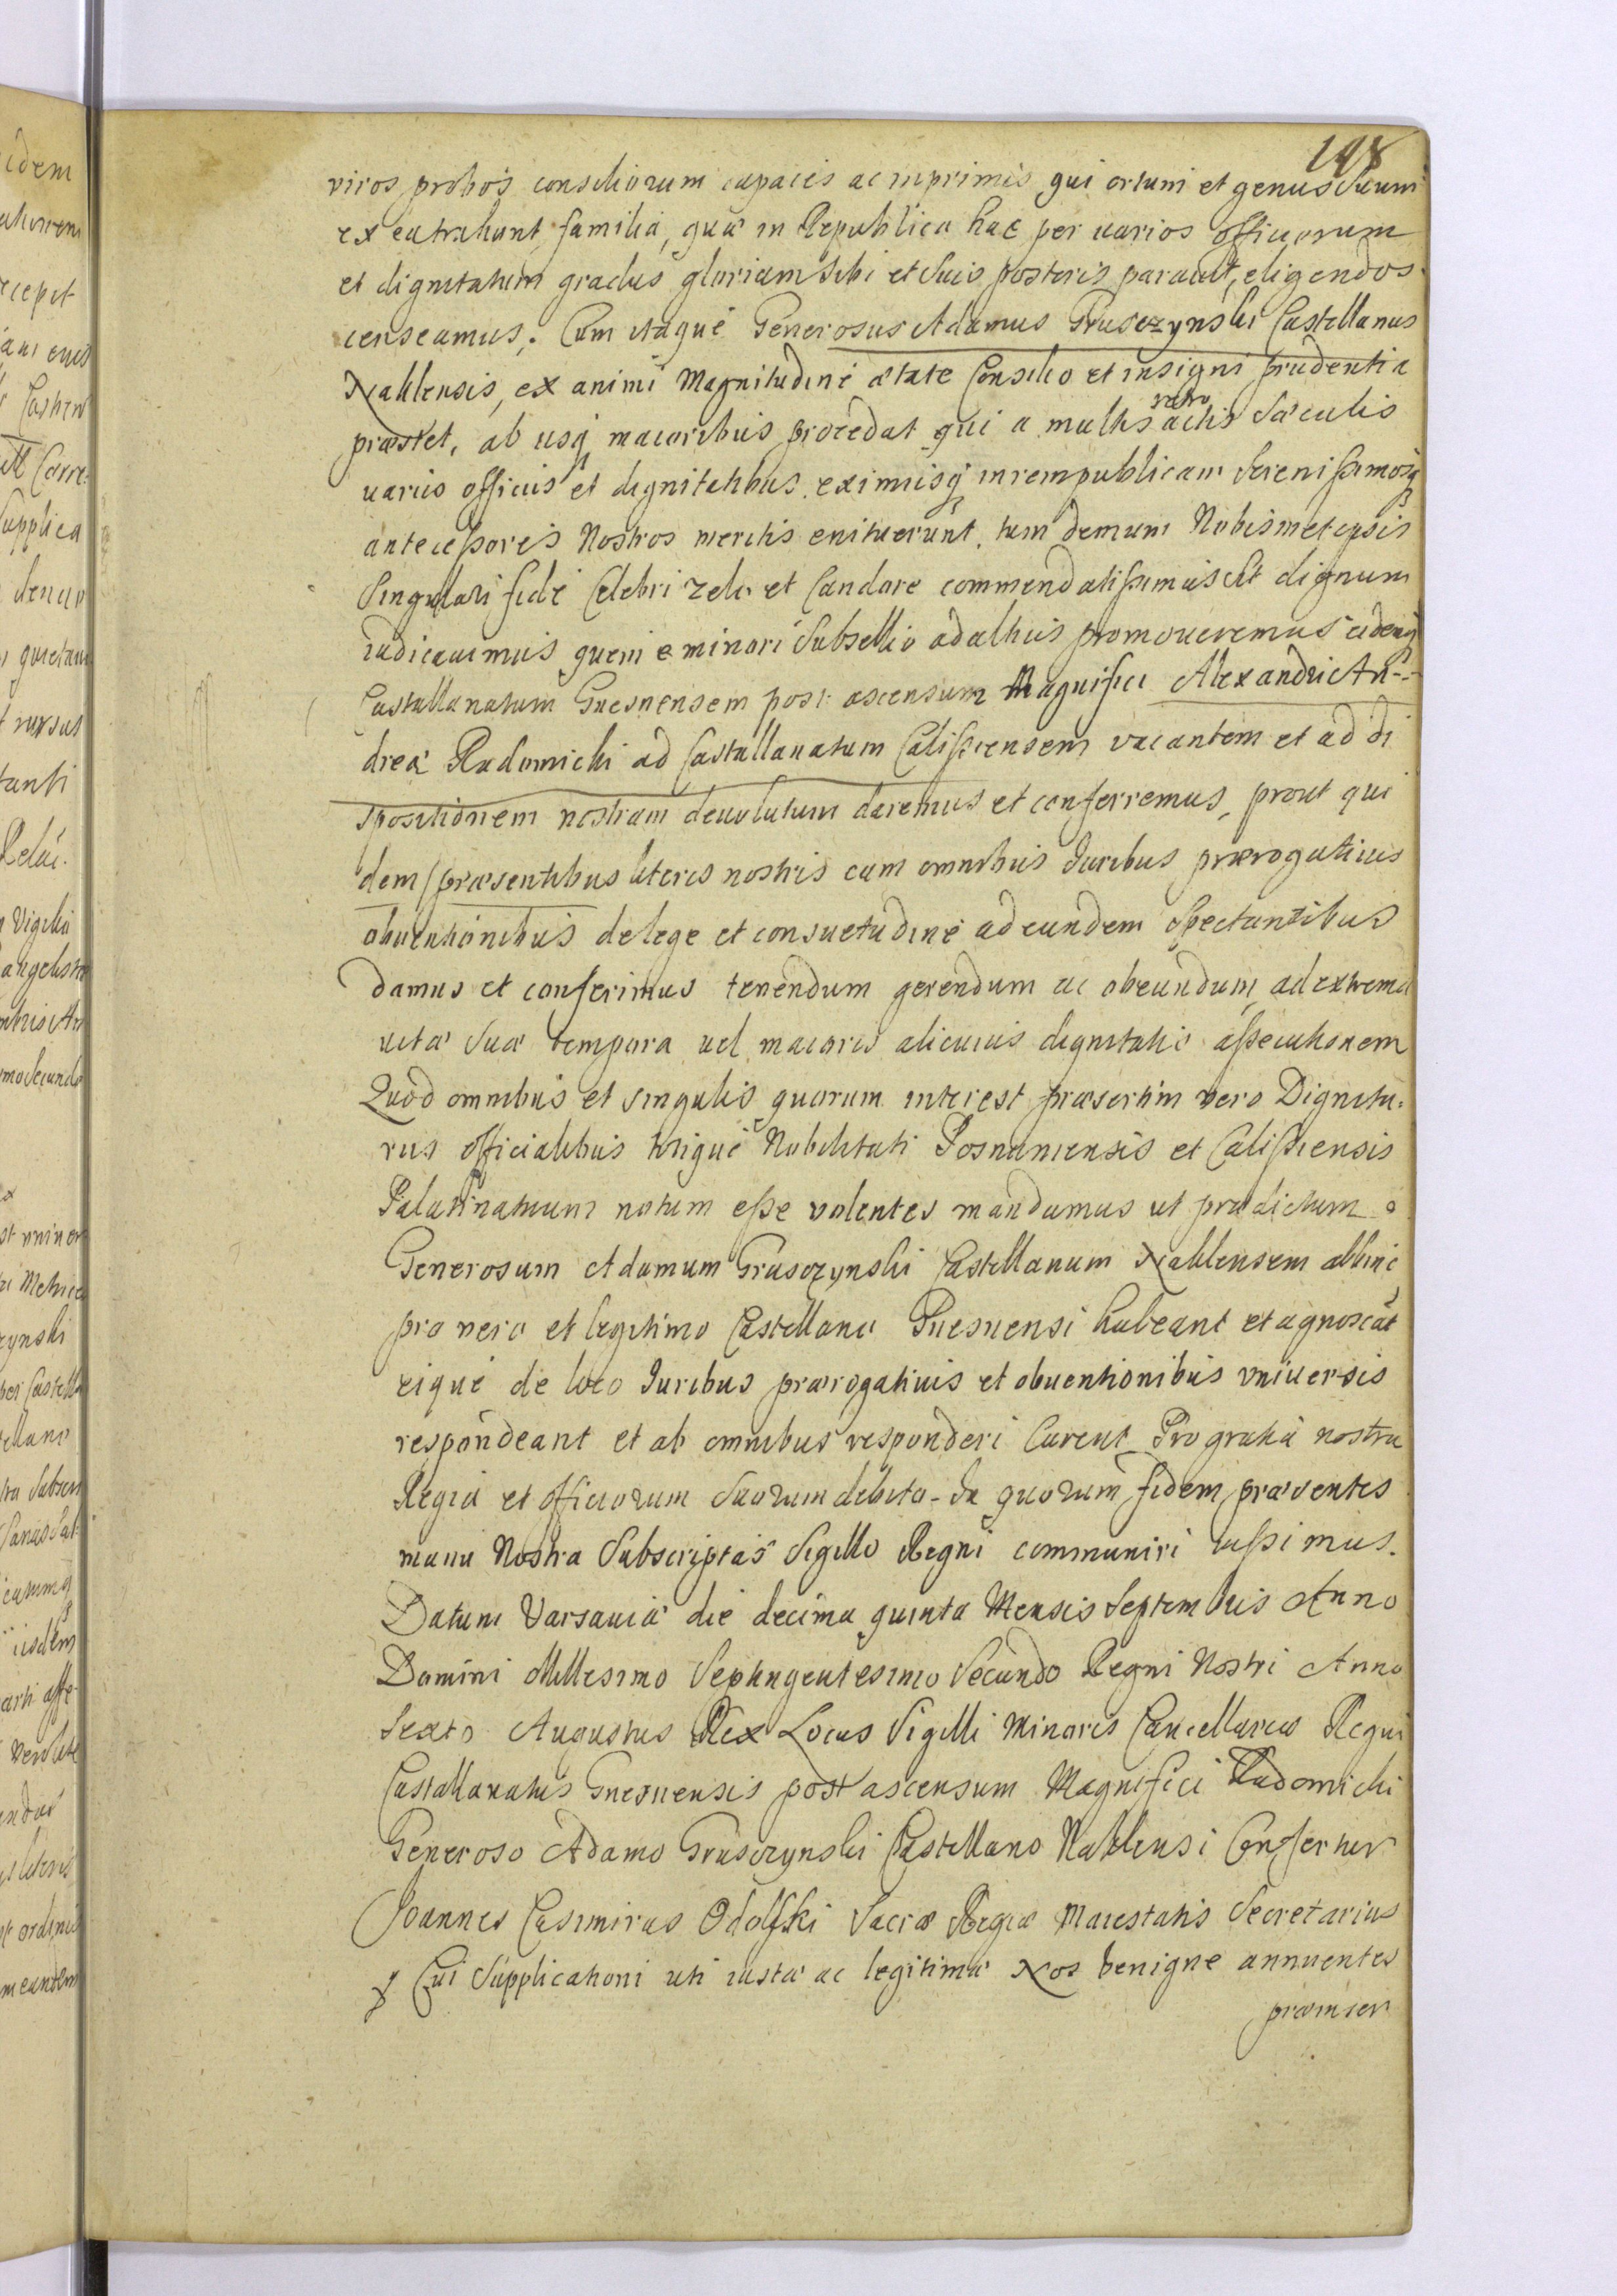 198
viros probos consiliorum capaces ac inprimis qui ortum et genus suum
ex ea trahunt familia, quæ in Republica hac per varios officiorum
et dignitatum gradus gloriam sibi et suis posteris parauit, eligendos
censeamus. Cum itaque Generosus Adamus Grusczynski Castellanus
Naklensis, ex animi Magnitudine ætate Consilio et insigni prudentia
præstet, ab usq maioribus procedat qui a multis retro actis sæculis
uariis officiis et dignitatibus eximiisq in rempublicam serenissimosq
antecessores Nostros meritis enituerunt. tum demum Nobismetipsis
singulari fide Celebri zelo et Candore commendatissimus sit dignum
iudicauimus quem e minori subsellio ad altius promoueremus eidemq
Castallanatum Gnesnensem post ascensum Magnifici Alexandri An-
dreæ Radomicki ad Castallanatum Calissiensem vacantem et ad di
spositionem nostram deuolutum daremus et conferremus, prout qui
dem præsentibus literis nostris cum omnibus Iuribus prærogatiuis
obuentionibus de lege et consuetudine ad eundem spectantibus
damus et conferimus tenendum gerendum ac obeundum ad extrema
uitæ suæ tempora uel maioris alicuius dignitatis assecutionem
Quod omnibus et singulis quorum interest præsertim vero Dignita.
riis officialibus totique Nobilitati Posnaniensis et Calissiensis
Palatinatuum notum esse volentes mandamus ut prædictum
Generosum Adamum Grusczynski Castellanum Naklensem abhinc
pro vero et legitimo Castellano Gnesnensi habeant et agnoscāt
eique de loco Iuribus prærogatiuis et obuentionibus vniuersis
respondeant et ab omnibus responderi Curent Pro gratia nostra
Regia et officiorum suorum debito - In quorum fidem præsentes
manu Nostra subscriptas sigillo Regni communiri iussimus.
Datum Varsauiæ die decima quinta Mensis Septembris Anno
Domini Millesimo Septingentesimo Secundo Regni Nostri Anno
Sexto Augustus Rex Locus Sigilli Minoris Cancellariæ Regni
Castallanatus Gnesnensis post ascensum Magnifici Radomicki
Generoso Adamo Grusczynski Castellano Naklensi Confertur
Joannes Casimirus Odolfski Sacræ Regiæ Maiestatis Secretarius
Cui Supplicationi uti iustæ ac legitimæ Nos benigne annuentes